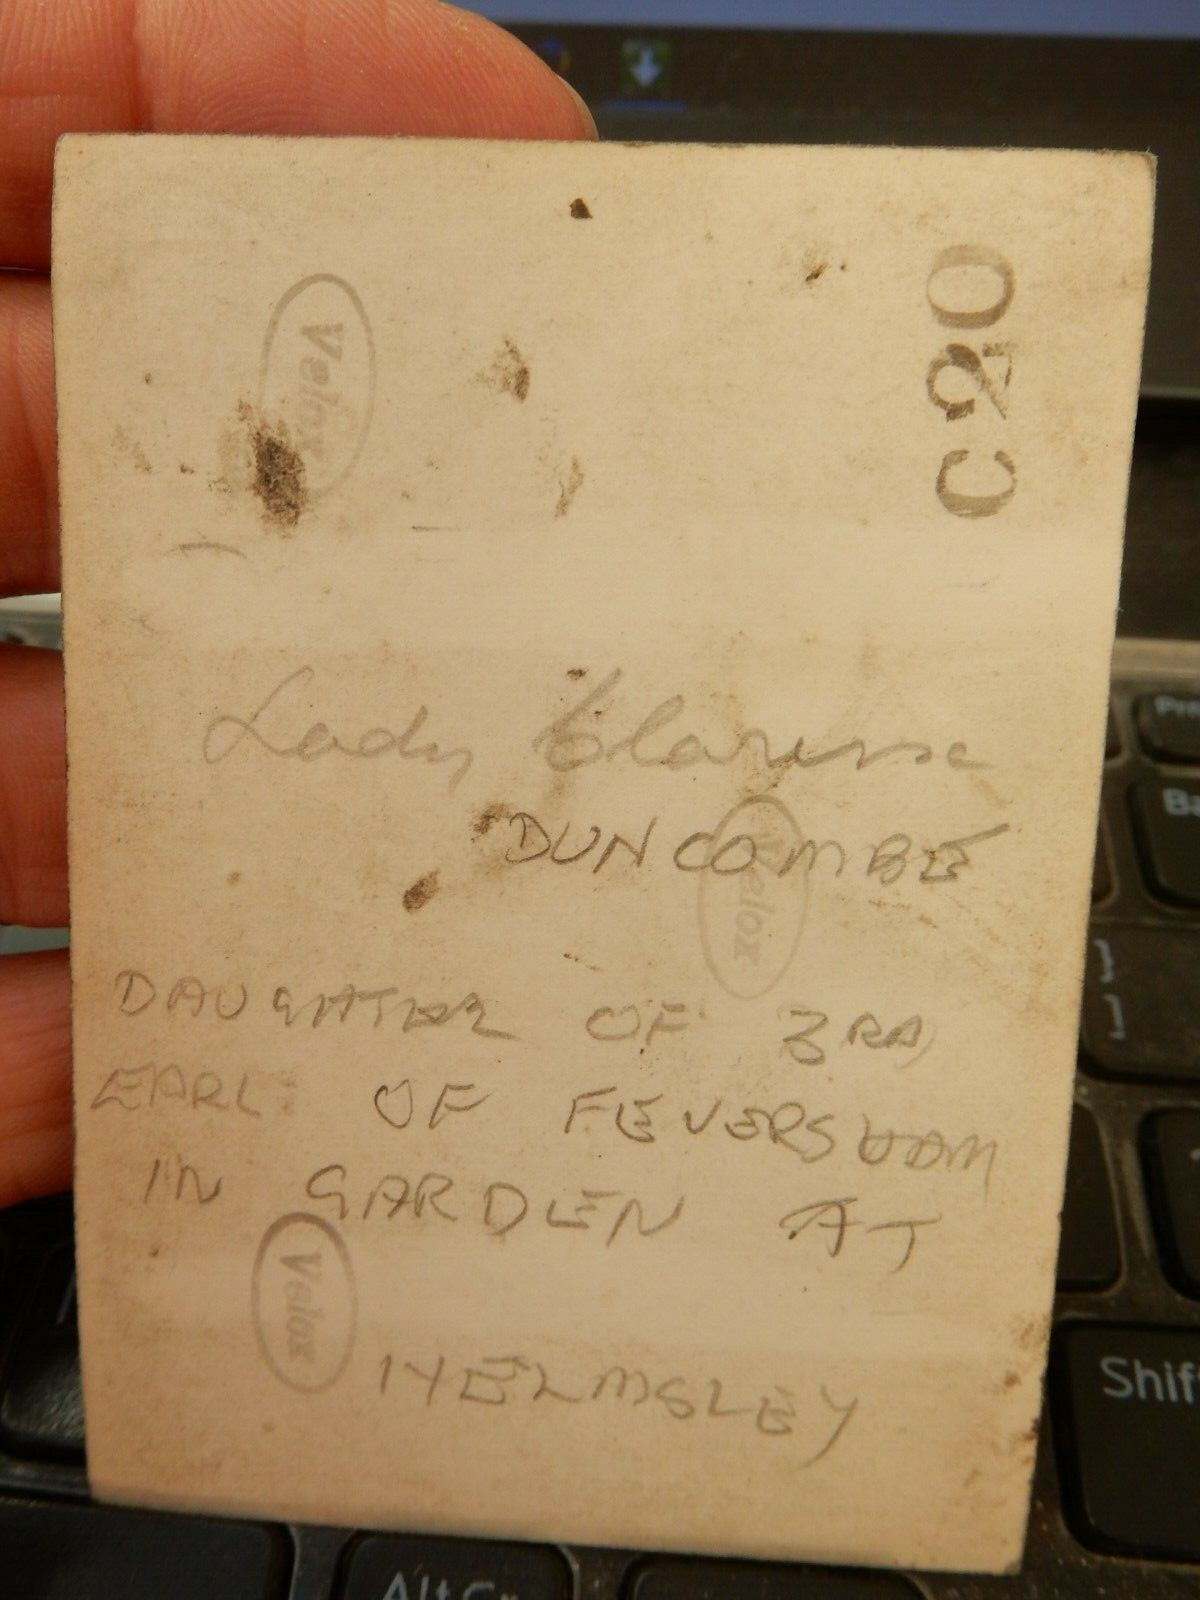 C20
Velox
Lady Clarissa
DUNCOMBE
Velox
DAUGHTER OF 3RD
EARL OF FEVERSHAM
IN GARDEN AT
Velox
HELMSLEY
}
]
Shif
Alt Gr